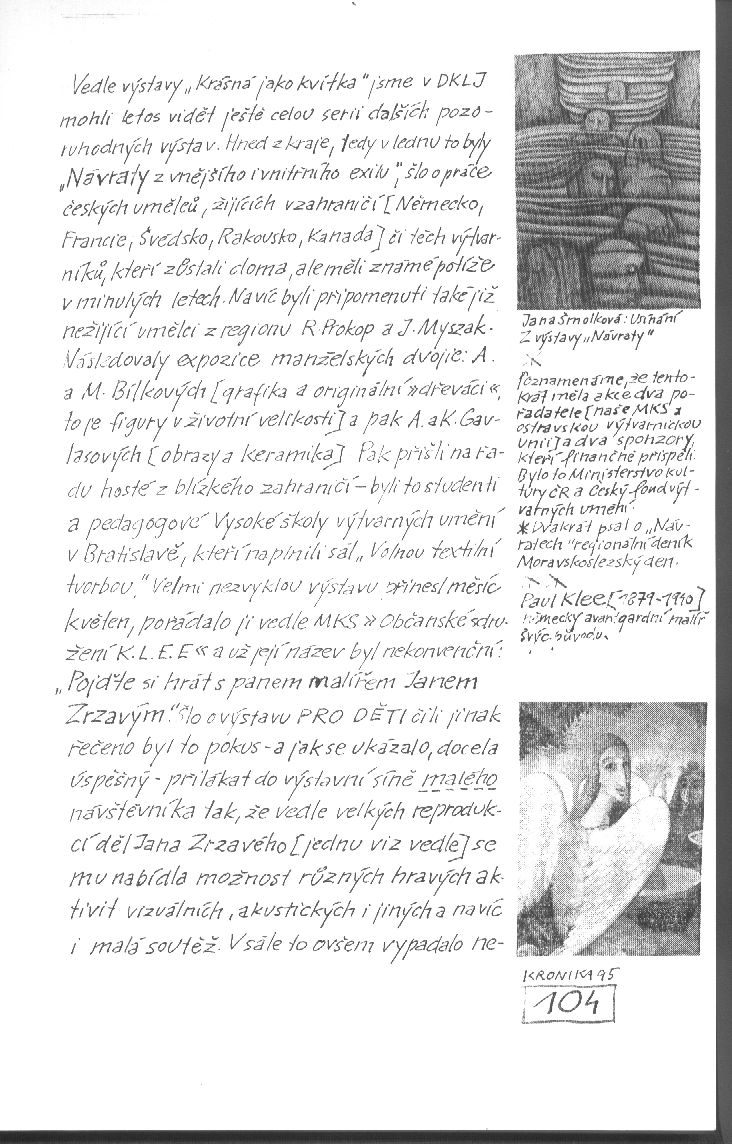 Vedle výstavy „Krásná jako kvítka" jsme v DKLJ
mohli letos vidět ještě celou serii dalších pozo-
ruhodných výstav. Hned z kraje, tedy v lednu to byly
„Návraty z vnějšího i vnitřního exilu", šlo o práce
českých umělců, žijících v zahraničí [Německo,
Francie, Švédsko, Rakousko, Kanada] či těch výtvar-
níků, kteří zůstali doma, ale měli známé potíže
v minulých letech. Navíc byli připomenuti také již
nežijící umělci z regionu R. Prokop a J. Myszak.
Následovaly expozice manželských dvojic: A.
a M. Bílkových [grafika a originální »dřeváci«,
to je figury v životní velikosti] a pak A. a K. Gav-
lasových [obrazy a keramika] Pak přišli na řa-
du hosté z blízkého zahraničí – byli to studenti
a pedagogové Vysoké školy výtvarných umění
v Bratislavě, kteří naplnili sál „Volnou textilní
tvorbou." Velmi nezvyklou výstavu přinesl měsíc
květen, pořádalo ji vedle MKS » Občanské sdru-
žení K.L.E.E « a už její název byl nekonvenční:
„Pojďte si hrát s panem malířem Janem
Zrzavým". Šlo o výstavu PRO DĚTI čili jinak
řečeno byl to pokus - a jak se ukázalo, docela
úspěšný - přilákat do výstavní síně malého
návštěvníka tak, že vedle velkých reproduk-
cí děl Jana Zrzavého [jednu viz vedle] se
mu nabídla možnost různých hravých ak-
tivit vizuálních, akustických i jiných a navíc
i malá soutěž. V sále to ovšem vypadalo ne-
Jana Šmolková: Usínání
Z výstavy „Návraty"
Poznamenáme, že tento-
krát měla akce dva po-
řadatele [naše MKS a
ostravskou výtvarnickou
unii] a dva sponzory,
kteří finančně přispěli.
Bylo to Ministerstvo kul-
tury ČR a Český fond výt-
varných umění.
* Dvakrát psal o „Náv-
ratech" regionální deník
Moravskoslezský den.
Paul Klee [1879-1940]
německý avantgardní malíř
švýc. původu.
KRONIKA 95
104